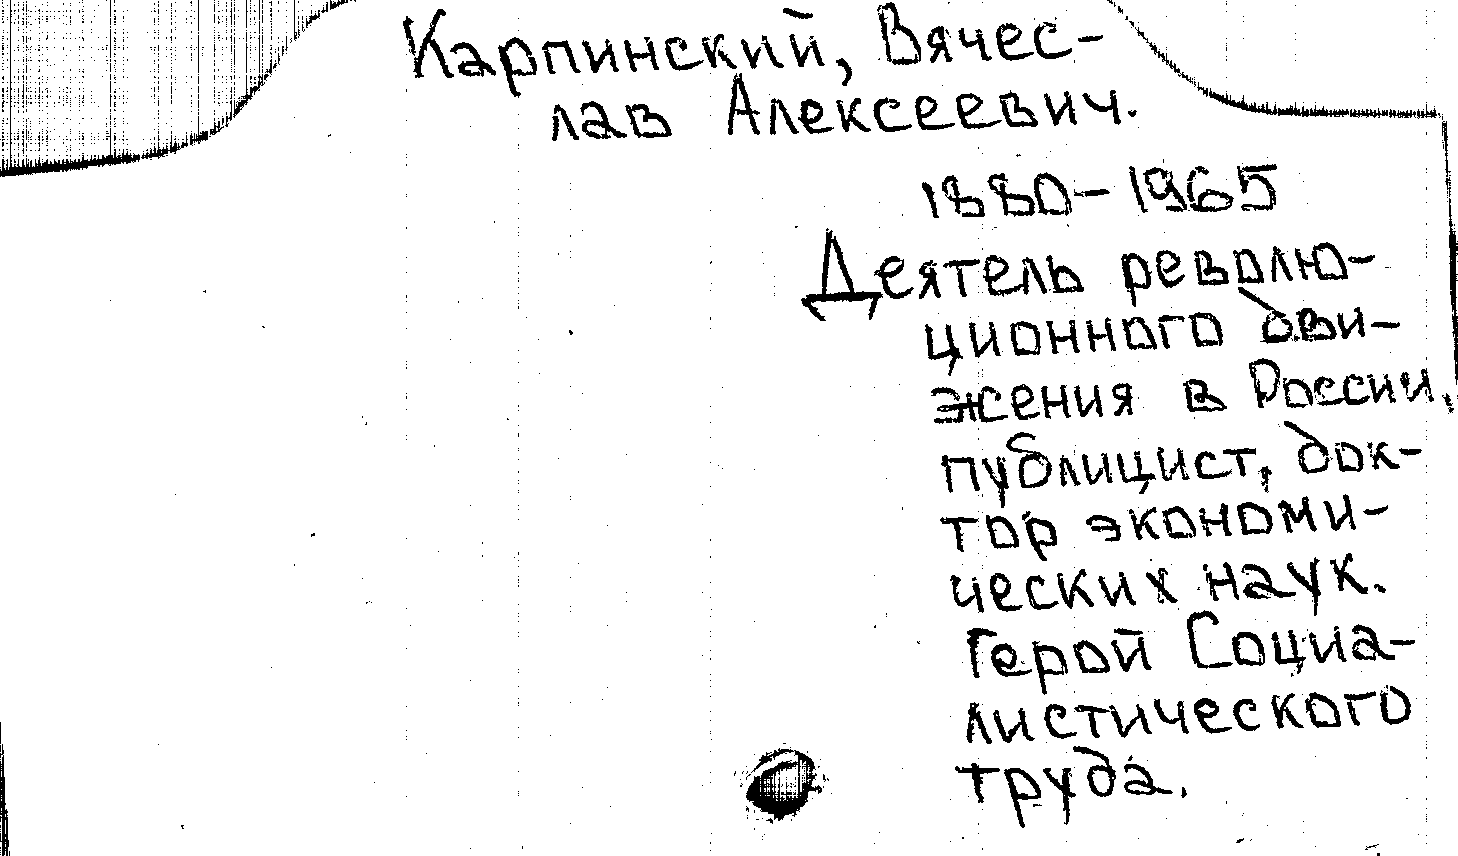 Карпинский, Вячес-
лав Алексеевич.
1880-1965
Деятель револю-
ционного дви-
жения в России,
публицист, док-
тор экономи-
ческих наук.
Герой Социа-
листического
труда.